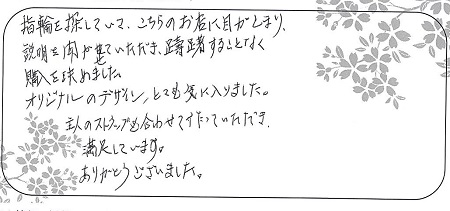 指輪を探していて、こちらのお店に目がとまり、
説明を聞かせていただき、躊躇することなく
購入を決めました。
オリジナルのデザイン、とても気に入りました。
主人のストラップも合わせて作っていただき、
満足しています。
ありがとうございました。